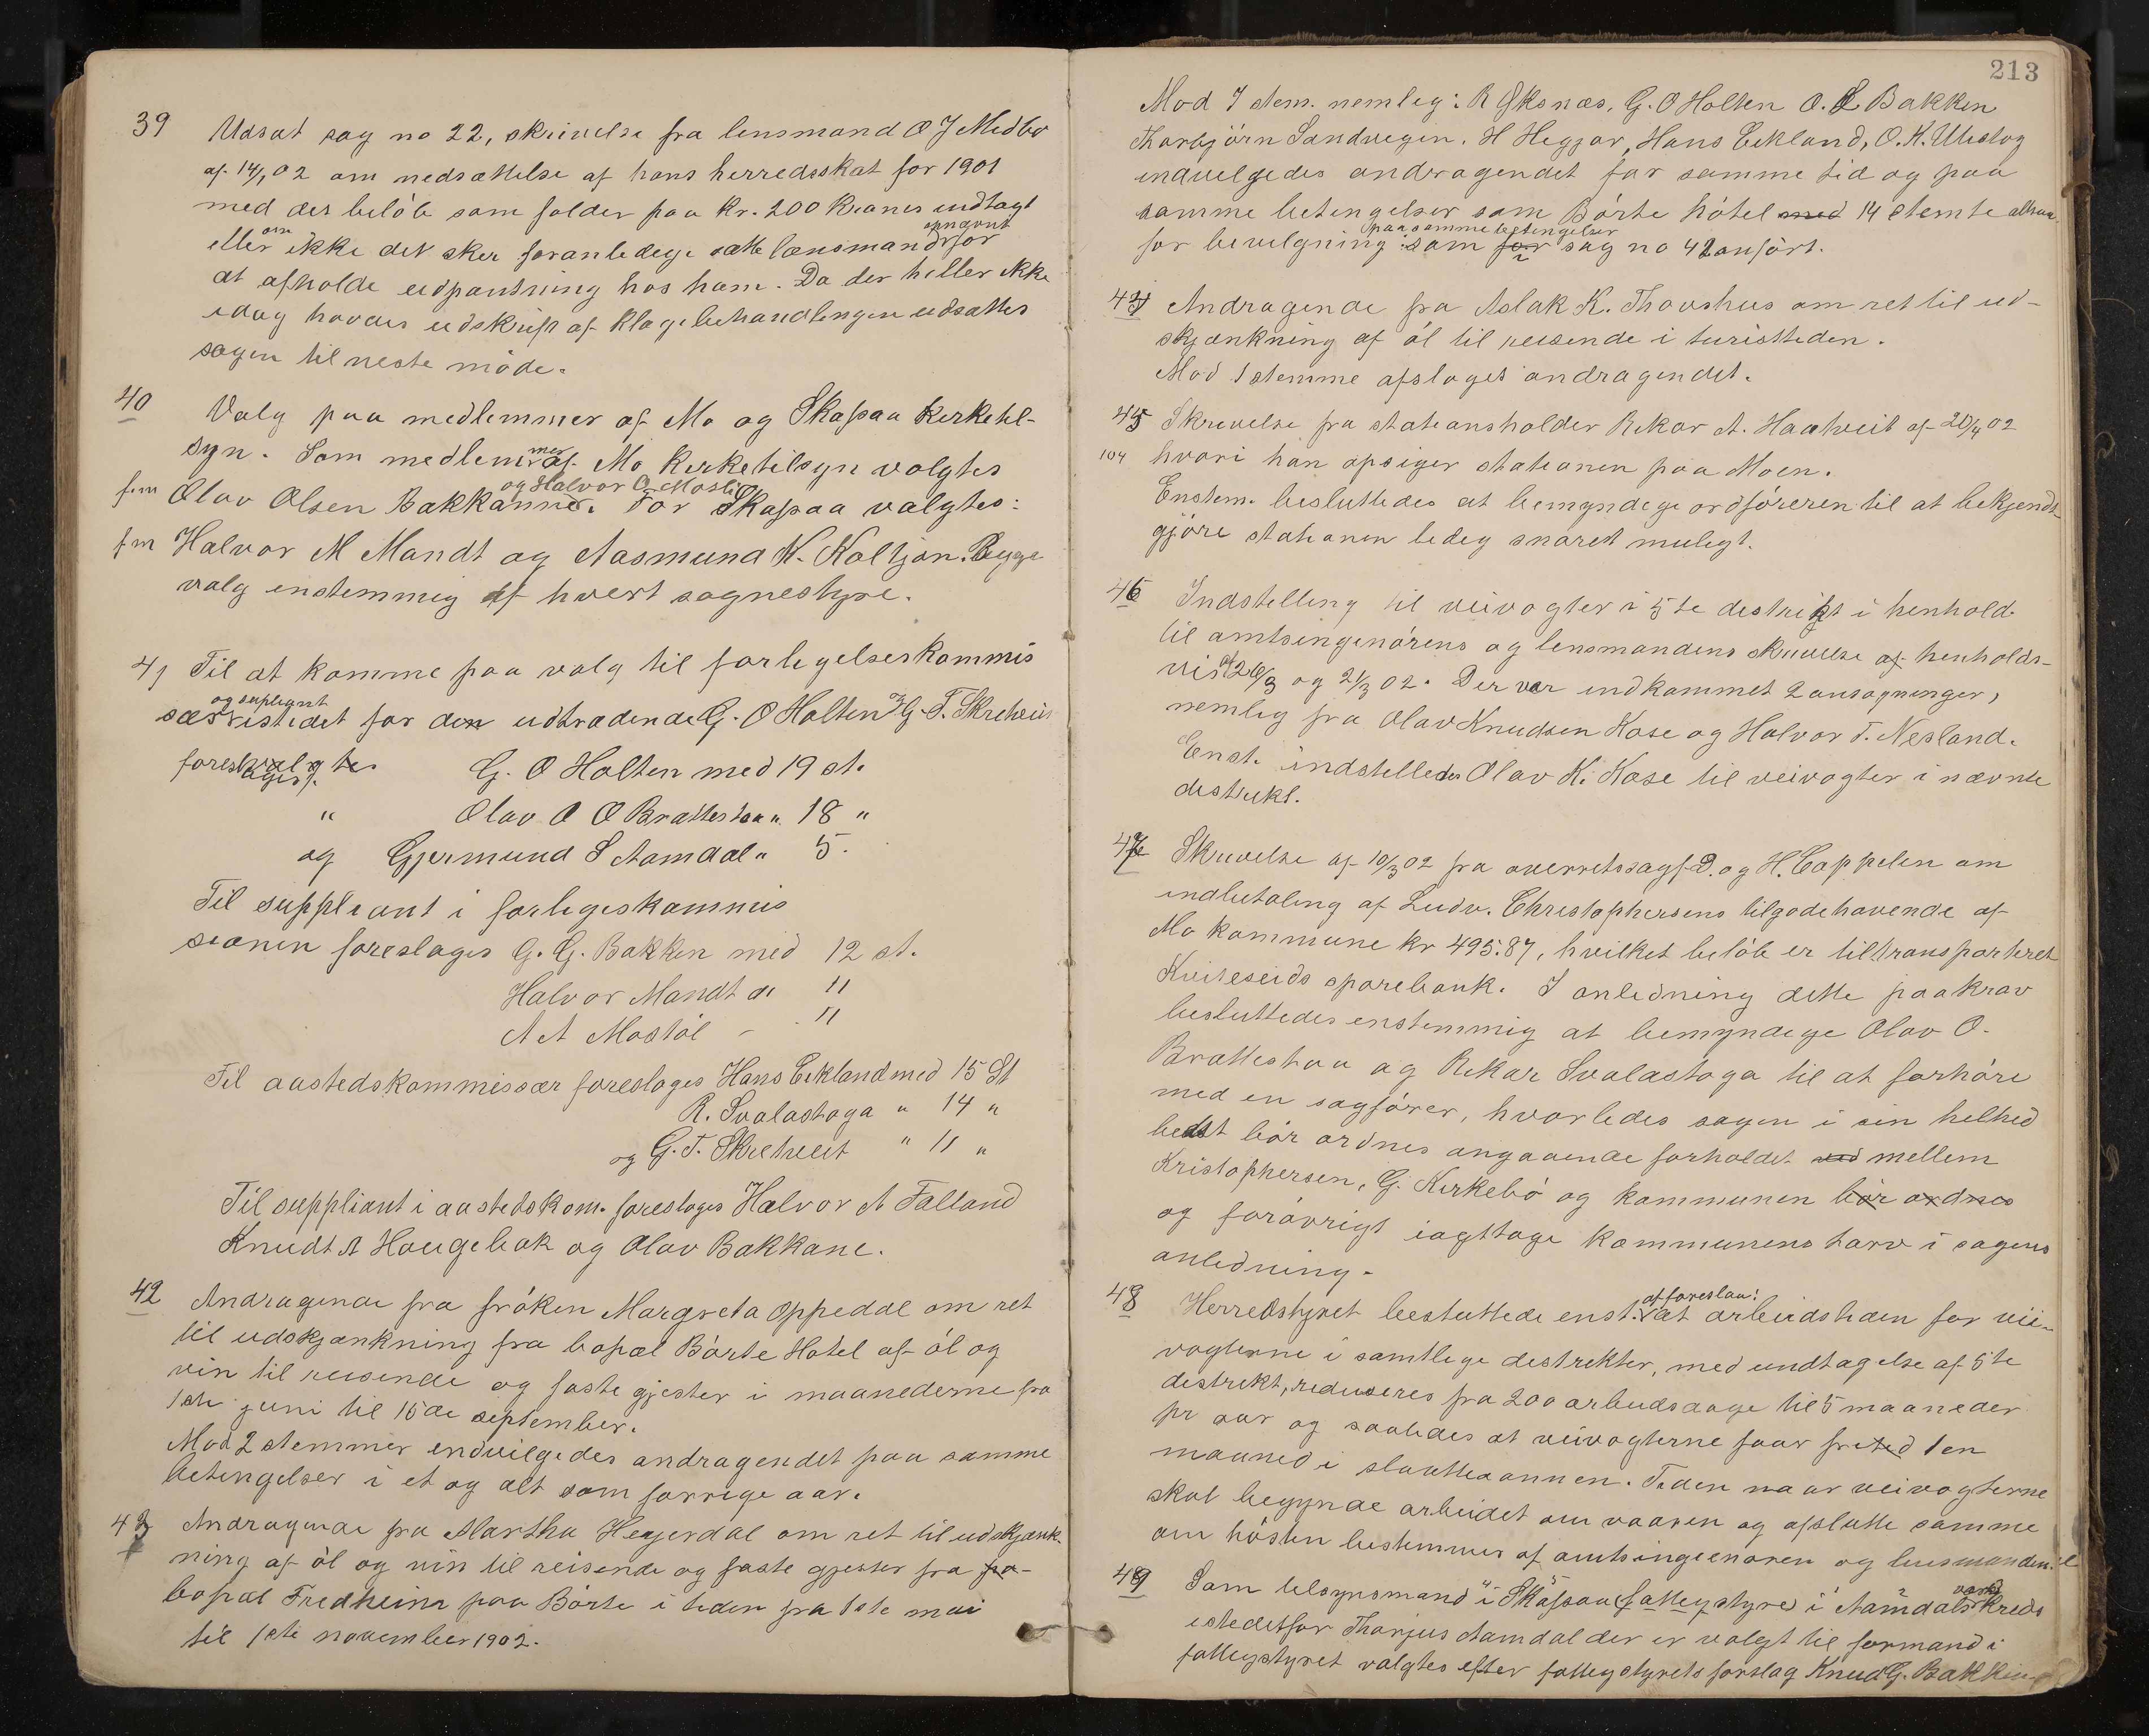 39 Udsat sag no 22, skrivelse fra lensmand O J Medbø
af 14/1 02 om nedsættelse af hans herredsskat for 1901
med det beløb som falder paa kr. 200 kroners indtægt
eller om ikke det sker foranledige sætte lænsmand opnævnt for
at afholde udpantning hos ham. Da der heller ikke
idag havdes udskrift af klagebehandlingen udsattes
sagen til neste møde.
40 Valg paa medlemmer af Mo og Skafsaa kirketil-
syn. Som medlemmer af Mo kirketilsyn valgtes
fm Olav Olsen Bakkanne og Halvor O. Mosli. For Skafsaa valgtes:
fm Halvor M Mandt og Aasmund K. Koltjøn. Begge
valg enstemmig af hvert sognestyre.
41 Til at komme paa valg til forligelseskommis
særistedet og supleant for den udtrædende G. O Holten og G. T. Skreheit
foreslages G. O Holten med 19 st.
" Olav O O Brattestaa " 18 "
og Gjermund S Aamdal " 5.
Til suppleant i forligeskommis
sionen foreslages G. G. Bakken med 12 st.
Halvor Mandt " 11
A A Mostøl - 11
Til aastedskommissær foreslages Hans Eekland med 15 St
R. Svalastoga " 14 "
og G. T. Skreheit " 11 "
Til suppliant i aastedskom. foreslages Halvor A Falland
Knudt A Haugebak og Olav Bakkane.
42 Andragende fra frøken Margreta Oppedal om ret
til udskjænkning fra bopæl Børte Hotel af øl og
vin til reisende og faste gjester i maanederne fra
1ste juni til 15de september.
Mod 2 stemmer indvilgedes andragendet paa samme
betingelser i et og alt som forrige aar.
43 Andragende fra Martha Heggerdal om ret til udskjænk-
ning af øl og vin til reisende og faste gjester fra
bopæl Fredheim paa Børte i tiden fra 1ste mai
til 1ste november 1902.
213
Mod 7 stem. nemlig: R Oksnæs, G. O Holten O. L Bakken
Thorbjørn Sandvegen. H Heggar, Hans Eekland, O. K. Utistog
indvilgedes andragendet for samme tid og paa
samme betingelser som Børte hotel med 14 stemte altsaa
for bevilgning paa samme betingelser som for i sag no 42 anført.
44 Andragende fra Aslak K. Thovshus om ret til ud-
skjænkning af øl til reisende i turisttiden.
Mod 1 stemme afsloges andragendet.
45 Skrivelse fra stationsholder Rikar A. Haatveit af 20/4 02
104 hvori han opsiger stationen paa Moen.
Enstem. besluttedes at bemyndige ordføreren til at bekjendt-
gjøre stationen ledig snarest muligt.
46 Indstilling til veivogter i 5te distrikt i henhold
til amtsingenørens og lensmandens skrivelse af henholds-
vis 26/3 og 21/3 02. Der var indkommet 2 ansøgninger,
nemlig fra Olav Knudsen Kose og Halvor T. Nesland.
Enst. indstilledes Olav K. Kose til veivogter i nævnte
distrikt.
47 Skrivelse af 10/3 02 fra overretssagf. D. og H. Cappelen om
indbetaling af Ludv. Christophersens tilgodehavende af
Mo kommune kr 495.87, hvilket beløb er tiltransporteret
Kviteseids sparebank. I anledning dette paakrav
besluttedes enstemmig at bemyndige Olav O.
Brattestaa og Rikar Svalastoga til at forhøre
med en sagfører, hvorledes sagen i sin helhed
bedst bør ordnes angaaende forholdet ved mellem
Kristophersen, G. Kirkebø og kommunen bør ordnes
og forøvrigt iagttage kommunens tarv i sagens
anledning.
48 Herredstyret besluttede enst. at foreslaa: at arbeidstiden for vei-
vogterne i samtlige distrikter, med undtagelse af 5te
distrikt, reduseres fra 200 arbeidsdage til 5 maaneder
pr aar og saaledes at veivogterne faar fritid 1 en
maaned i slaatteaannen. Tiden naar veivogterne
skal begynde arbeidet om vaaren og afslutte samme
om høsten bestemmes af amtsingeniøren og lensmanden.
49 Som tilsynsmand i Skafsaa fattigstyre i Aamdals værk kreds
istedetfor Thorjus Aamdal der er valgt til formand i
fattigstyret valgtes efter fattigstyrets forslag Knud G. Bakken